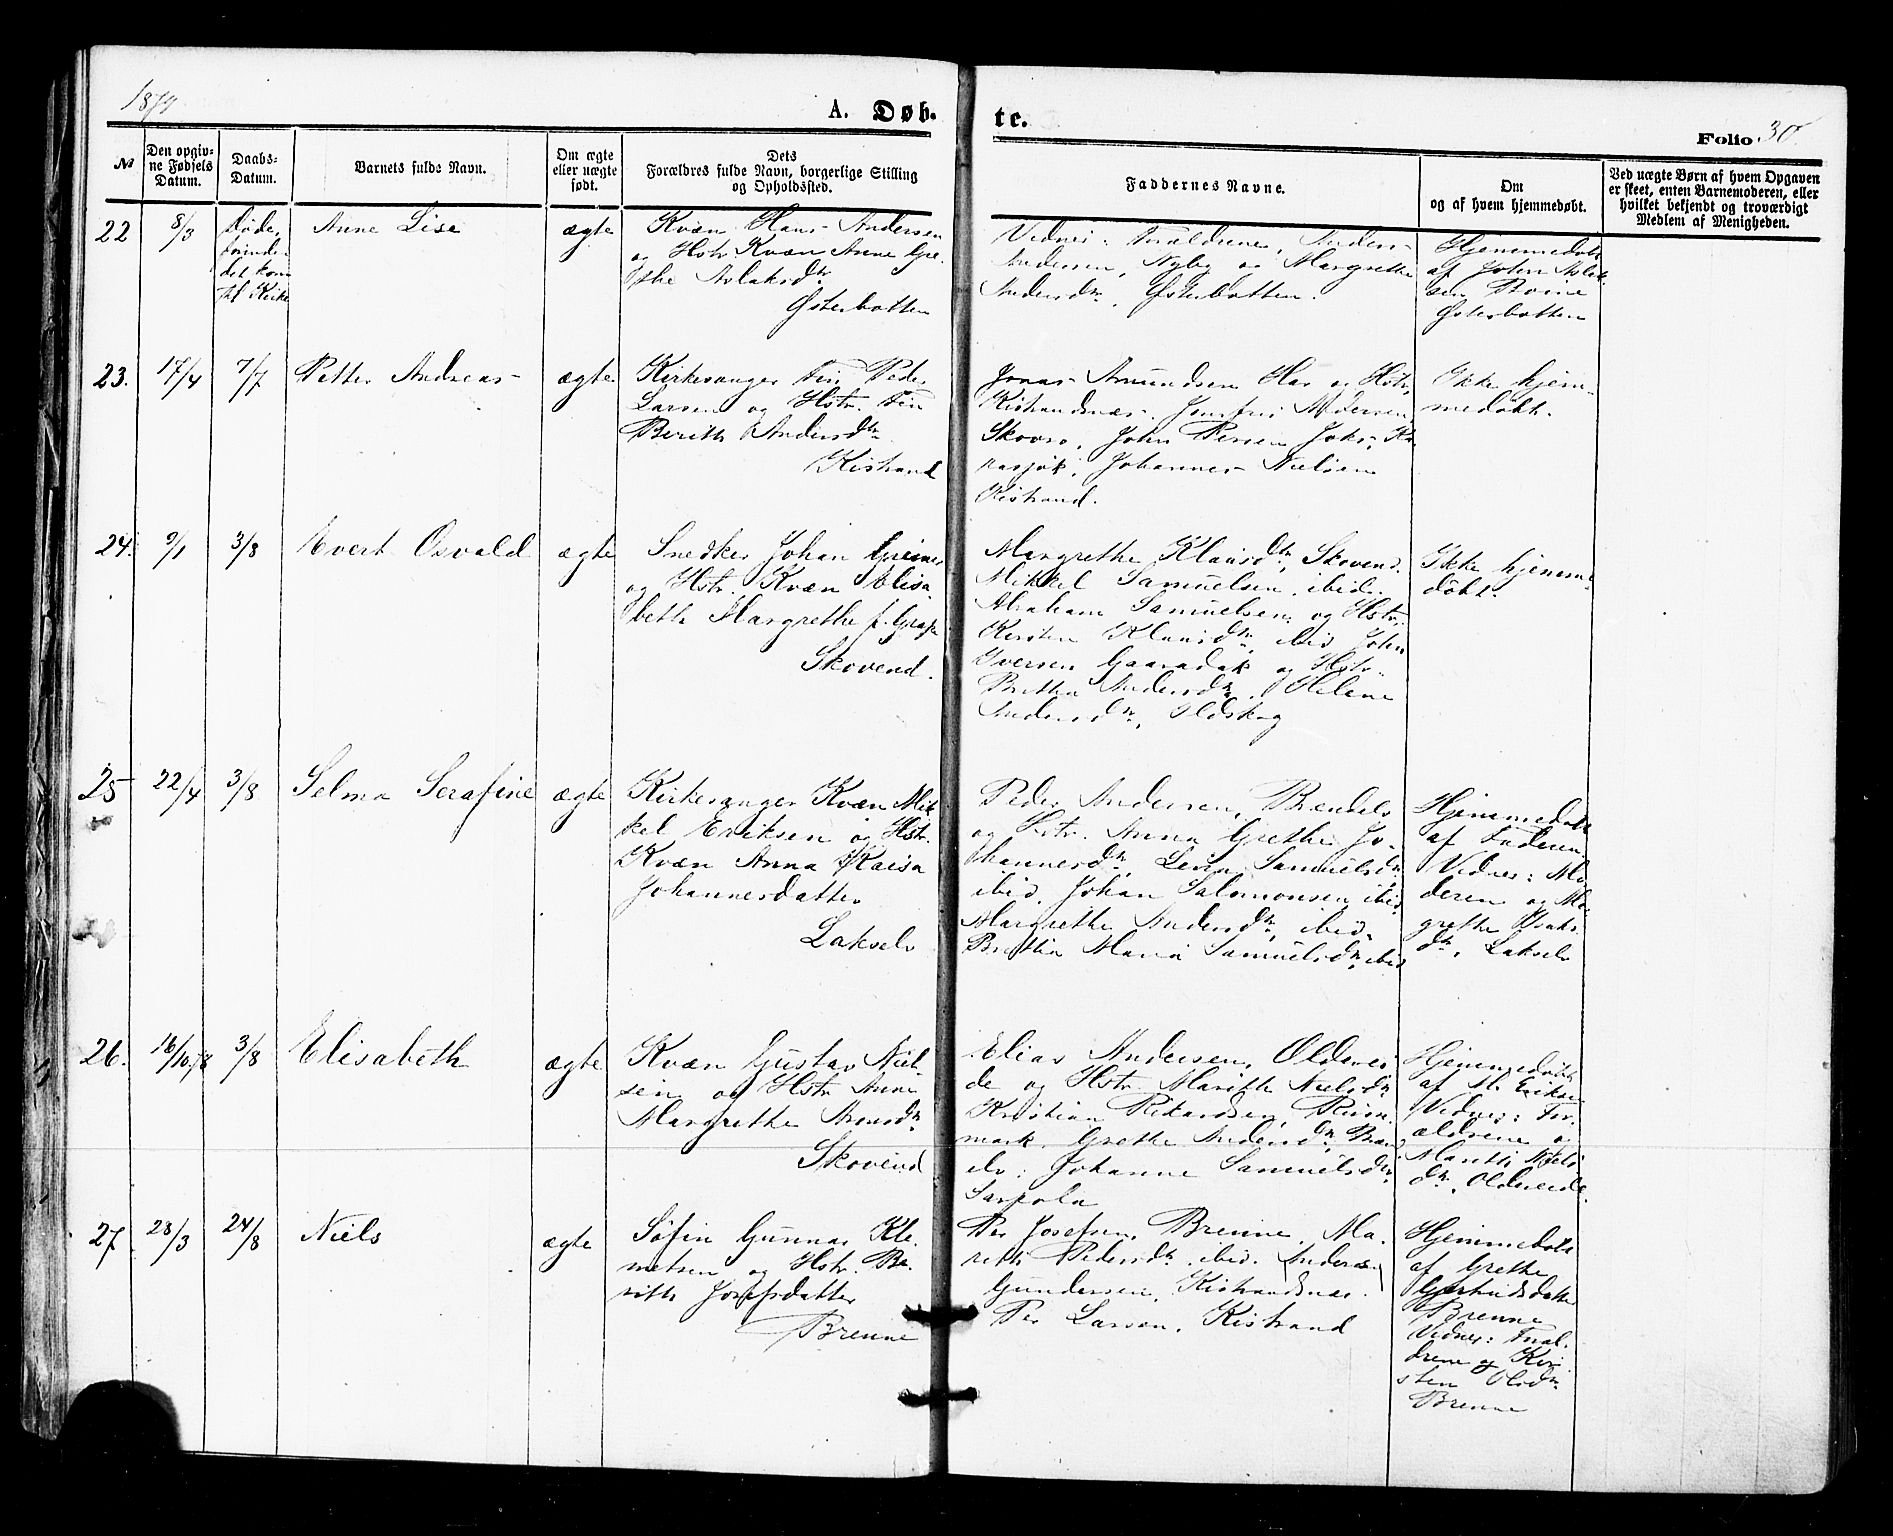 1879
A. Døb-
te.
Folio 30.
№
Den opgiv-
ne Fødsels
Datum.
Daabs-
Datum.
Barnets fulde Navn.
Om ægte
eller uægte
født.
Dets
Forældres fulde Navn, borgerlige Stilling
og Opholdssted.
Faddernes Navne.
Om
og af hvem hjemmedøbt.
Ved uægte Børn af hvem Opgaven
er skeet, enten Barnemoderen, eller
hvilket bekjendt og troværdigt
Medlem af Menigheden.
22
8/3
Døde,
førinden
det kom
til Kirke
Anne Lise
ægte
Kvæn Hans Andersen
og Hstr Kvæn Anne Gre-
the Aslaksdtr
Østerbotten
Vidner: Forældrene, Anders
Andersen, Nyby og Margrethe
Andersdtr, Østerbotten.
Hjemmedøbt
af John Aslak-
sen
Østerbotten
23.
17/4
7/7
Petter Andreas
ægte
Kirkesanger Fin Peder
Larsen og Hstr. Fin
Berith Andersdtr
Kistrand
Jonas Amundsen og Hstr,
Kistrandsnæs.
John Persen
Johannes Nielsen
Kistrand.
Ikke hjem-
medøbt.
24.
9/1
3/8
Evert Osvald
ægte
Snedker Johan Greiner
og Hstr. Kvæn Elisa-
beth Margrethe f.
Skovend.
Margrethe Klausdtr, Skovend.
Mikkel Samuelsen, ibid.
Abraham Samuelsen og Hstr.
Kirsten Klausdtr ibid John
Iversen og Hstr.
Britha Andersdtr, Helene
Andersdtr, Oldskog
Ikke hjemme-
døbt.
25
22/4
3/8
Selma Serafine
ægte
Kirkesanger Kvæn Mik-
kel Eriksen og Hstr.
Kvæn Anna Kaisa
Johannesdatter
Lakselv
Peder Andersen, Brændelv
og Hstr. Anna Grethe Jo-
hannesdtr, Lena Samuelsdtr
ibid, Johan Salomonsen ibid.
Margrethe Andersdtr, ibid.
Britha Maria Samuelsdtr, ibid
Hjemmedøbt
af Faderen
Vidner: Mo-
deren og Ma-
grethe Isaks-
dtr, Lakselv
26.
16/10 78
3/8
Elisabeth
ægte
Kvæn Gustav Niel-
sen og Hstr Anne
Margrethe Arnesdtr
Skovend
Elias Andersen, Oldervei-
de og Hstr Marith Nielsdtr
Kristian Rikardsen,
mark, Grethe Andersdtr, Bræn-
elv, Johanne Samuelsdtr
Sarpola
Hjemmedøbt
af M. Eriksen
Vidner: For-
ældrene og
Marith Niels-
dtr, Oldereide.
27
28/3
24/8
Niels
ægte
Søfin Gunnar Kle-
metsen og Hstr. Be-
rith Josefsdatter
Brenne
Per Josefsen, Brenne. Ma-
reth Pedersdtr ibid. Anders
Gundersen, Kistrandsnæs.
Per Larsen, Kistrand
Hjemmedøbt
af Grethe
Gjertrudsdatter
Brenne
Vidner: Foræl-
drene og Kir-
sten Olsdtr
Brenne